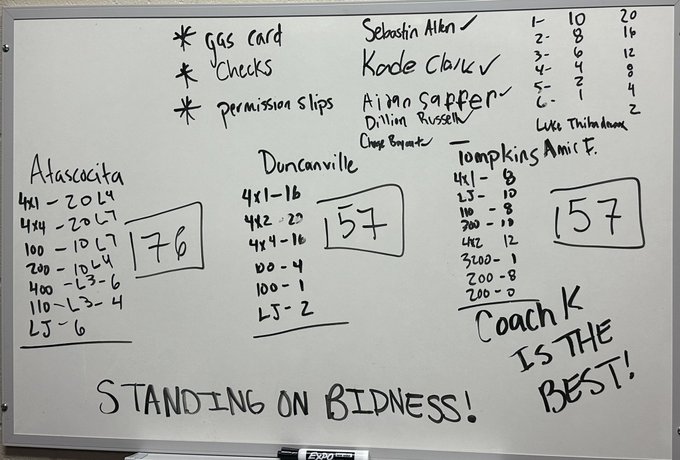 * gas card
* Checks
* permission slips
Sebastin Allen ✓
Kade Clark ✓
Aidan Saffer ✓
Dillion Russell ✓
Chase Bryant ✓
1- 10 20
2- 8 16
3- 6 12
4- 4 8
5- 2 4
6- 1 2
Luke
Amir F.
Atascocita
4x1 - 20 L4
4x4 - 20 L7
100 - 10 L7
200 - 10 L4
400 - L3 - 6
110 - L3 - 4
LJ - 6
76
Duncanville
4x1 - 16
4x2 - 20
4x4 - 16
100 - 4
100 - 1
LJ - 2
57
Tompkins
4x1 - 8
LJ - 10
110 - 8
300 - 10
4x2 12
3200 - 1
200 - 8
200 - 0
57
Coach K
IS THE
BEST!
STANDING ON BIDNESS!
EXPO